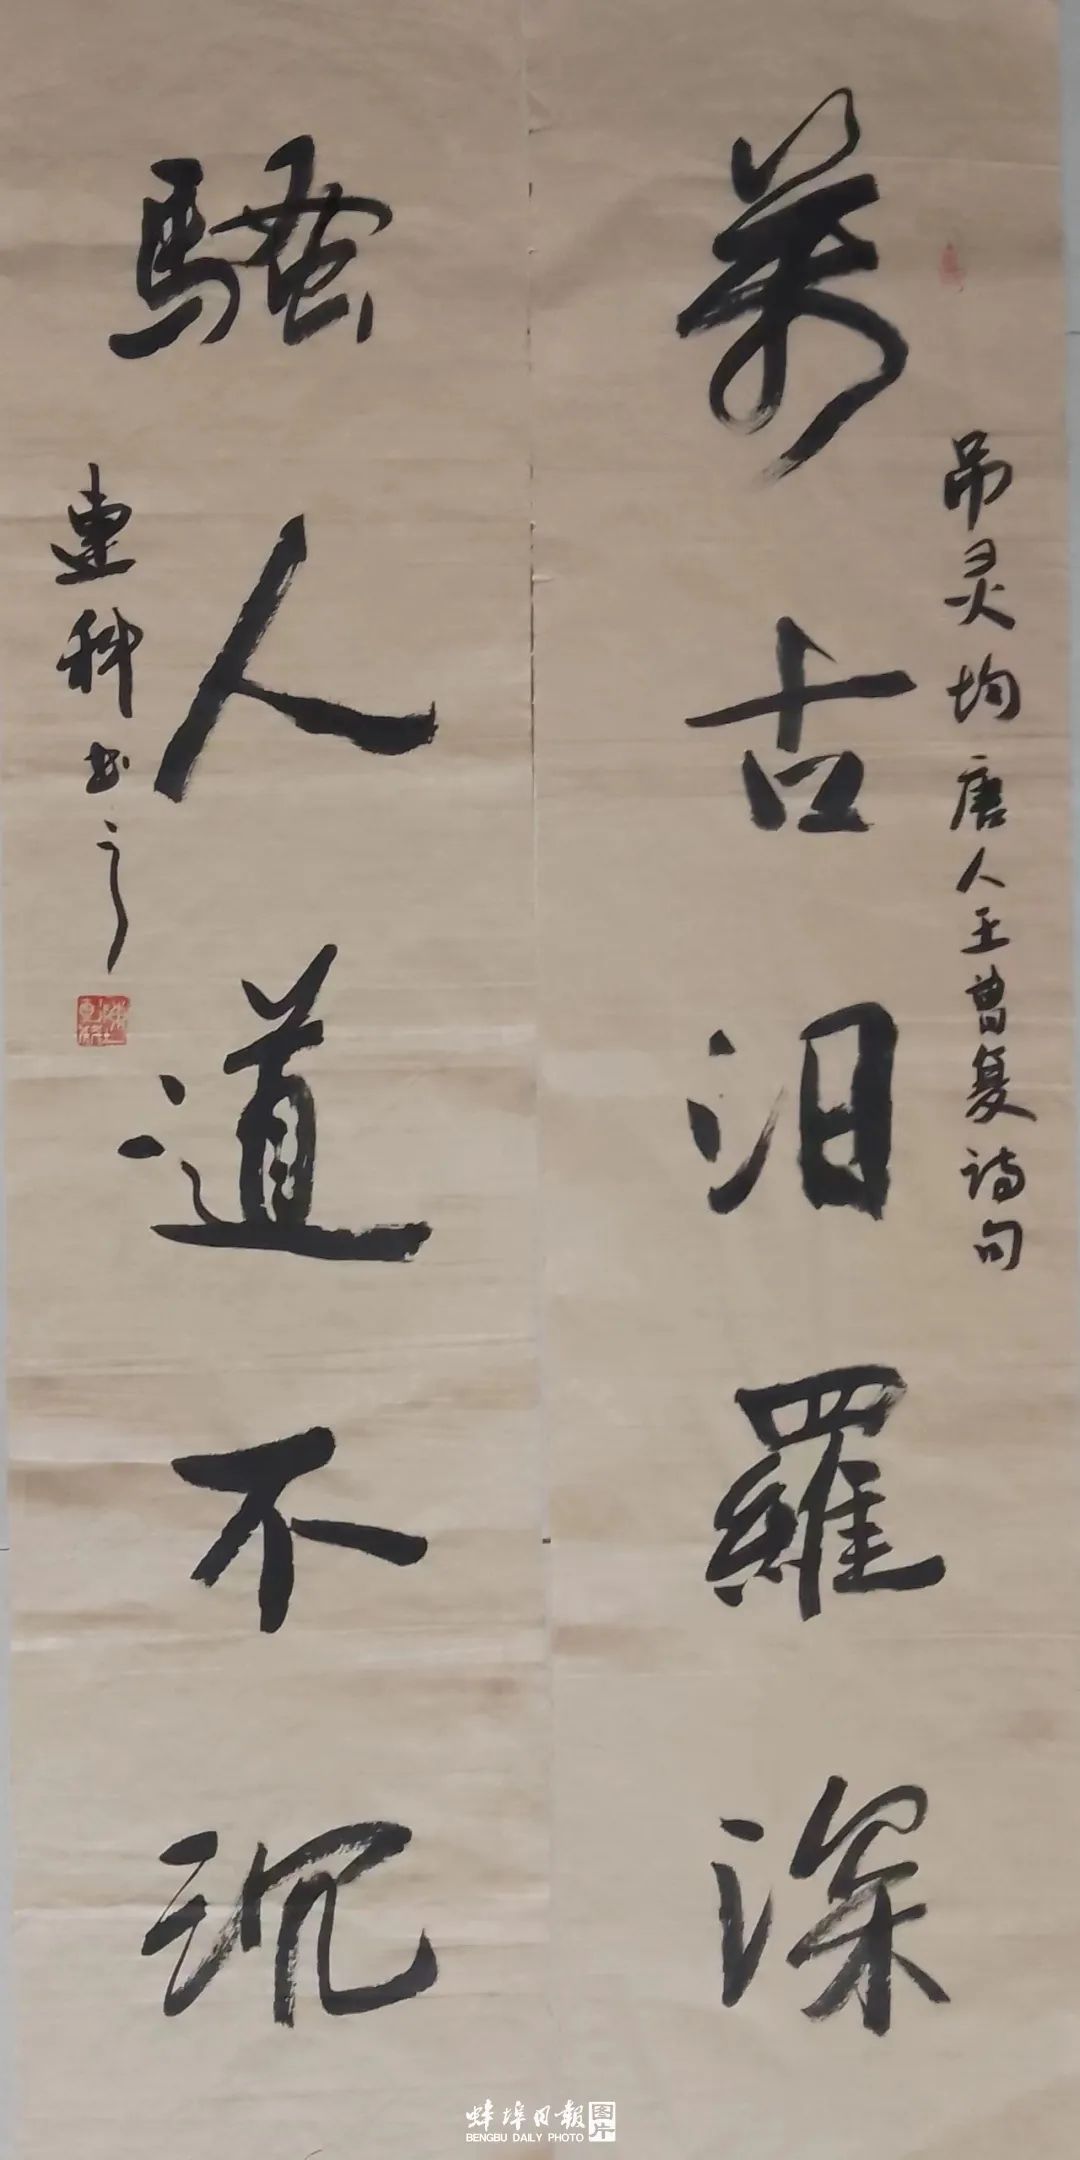 萬古汨羅深
吊灵均唐人王曾复诗句
騷人道不沉
連科书之
蚌埠日報 图片
BENGBU DAILY PHOTO